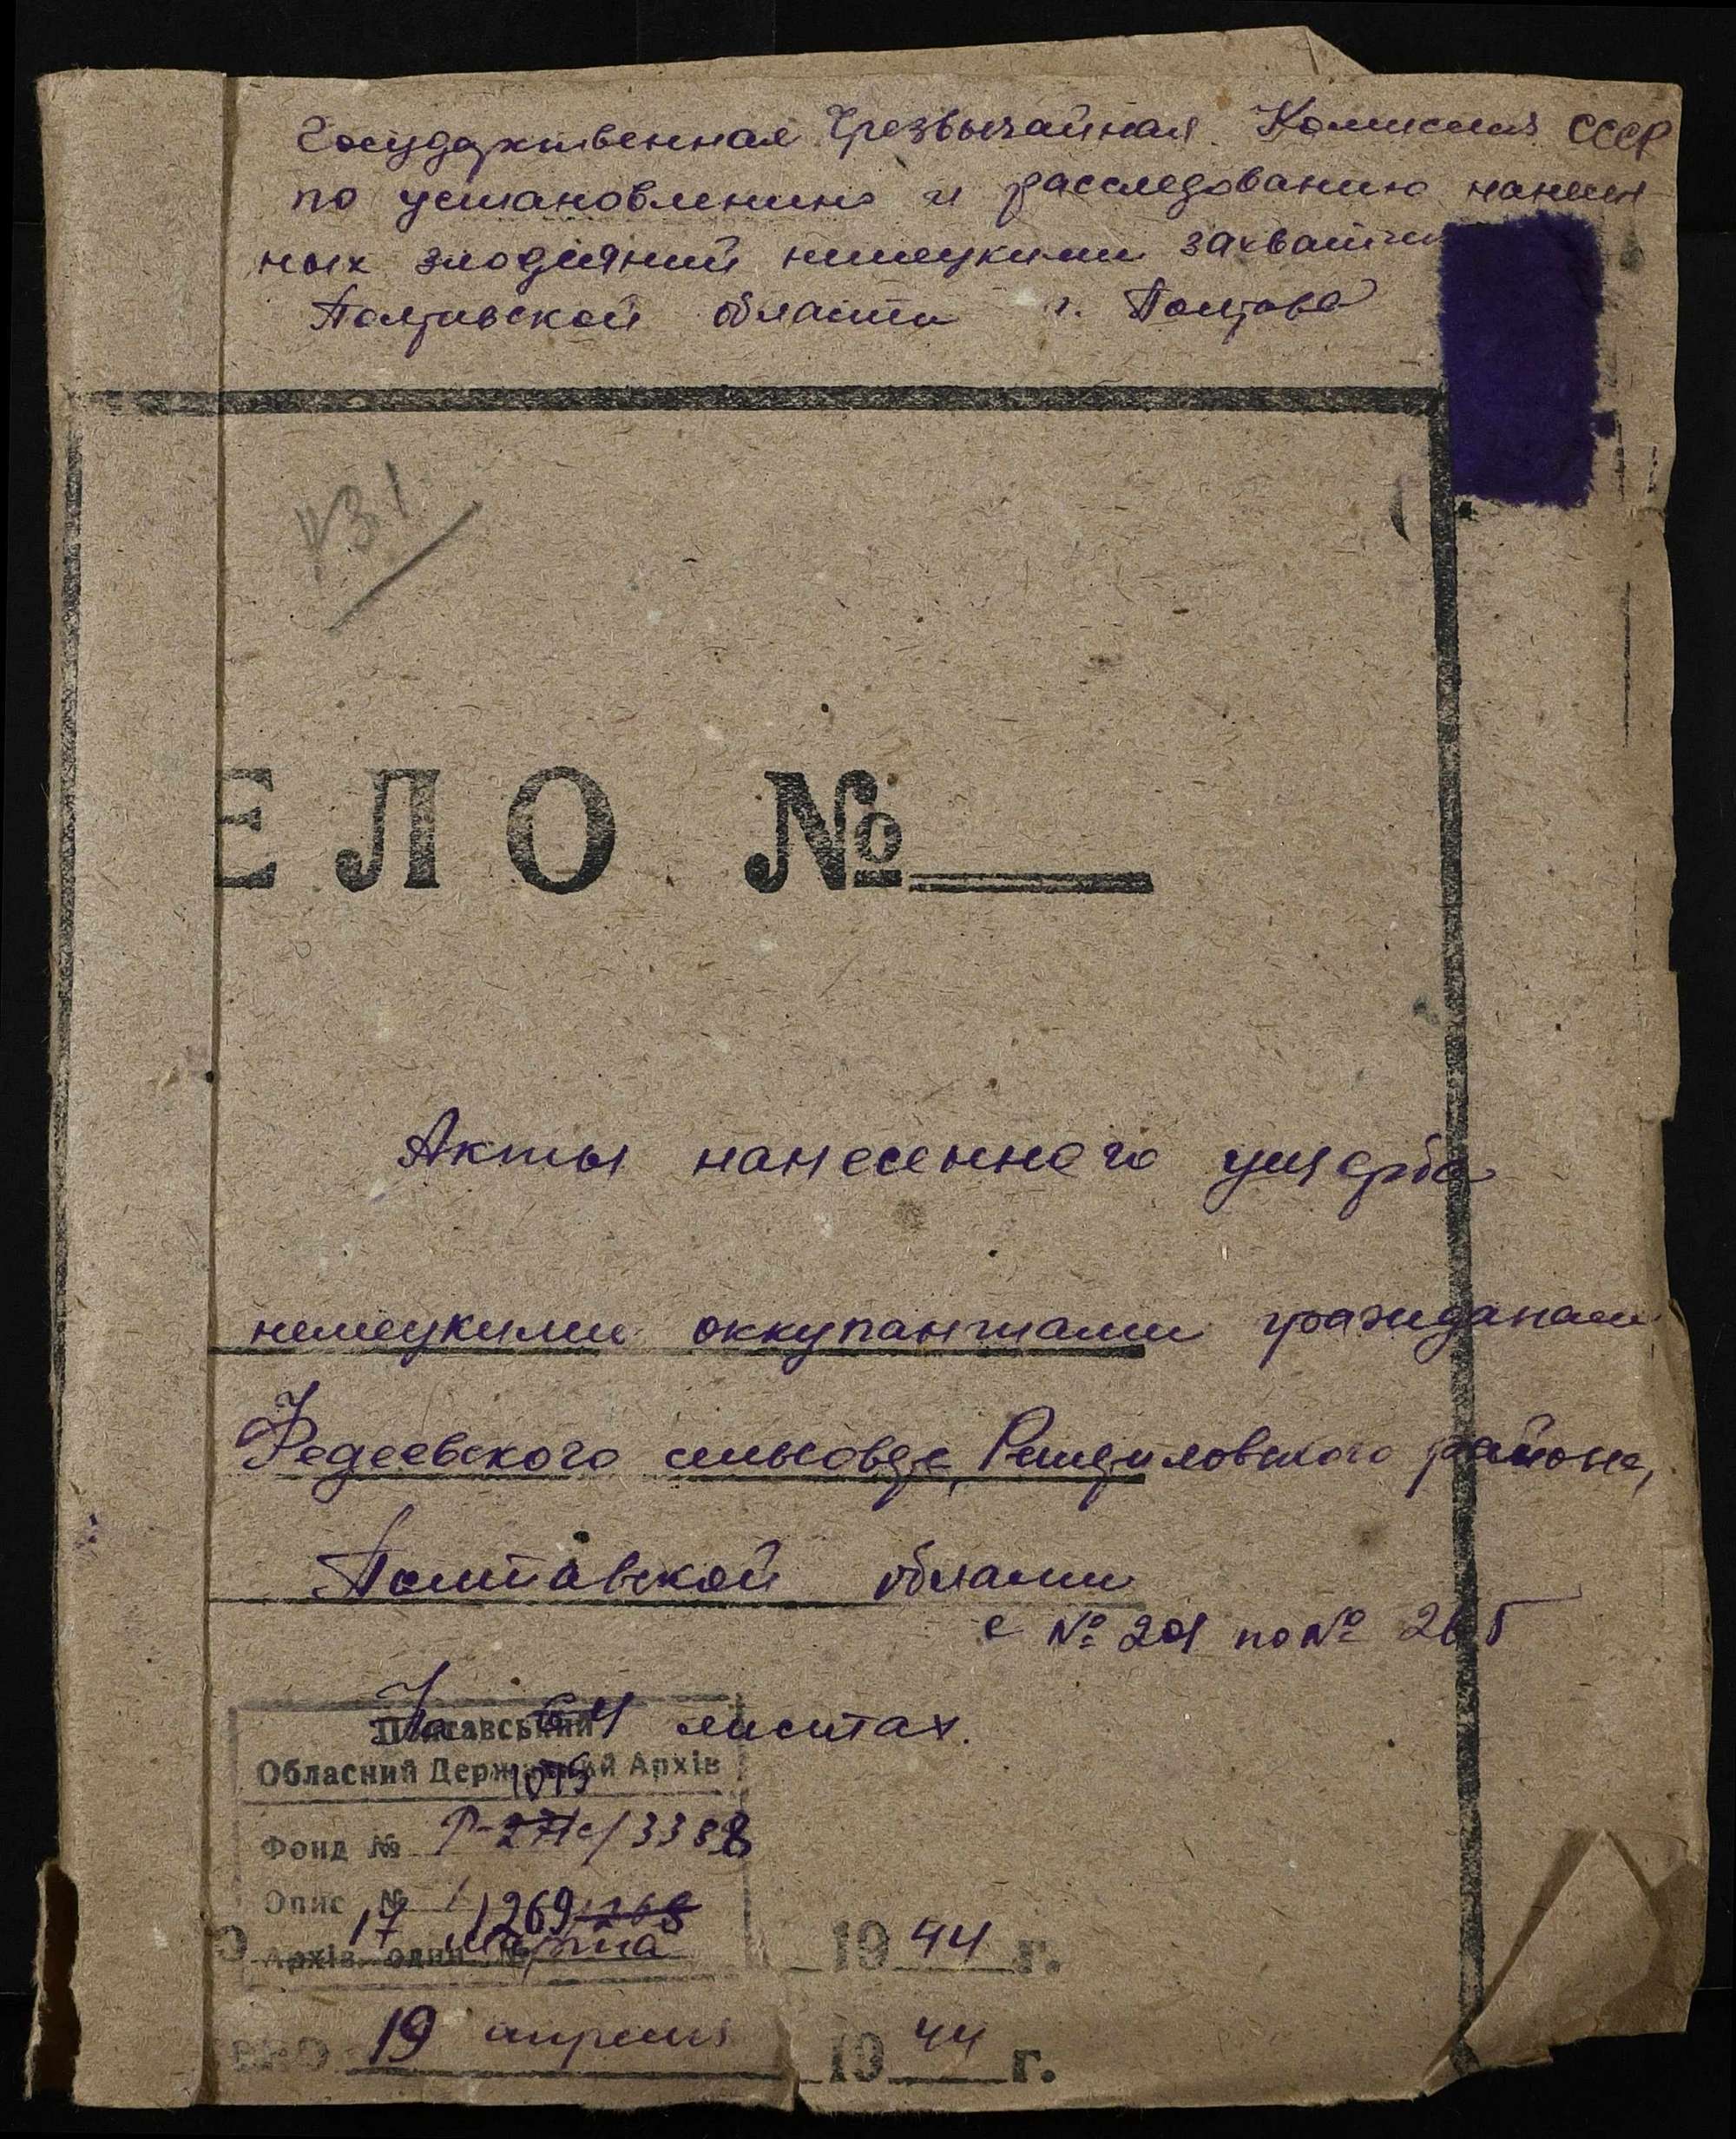 Государственная Чрезвычайная Комиссия СССР
по установлению и расследованию нанесен
ных злодеяний немецкими захватчи
Полтавской области г. Полтава
ЕЛО №
Акты нанесенного ущерба
немецкими оккупантами гражданам
Федеевского сельсовде, Решетиловского района,
Полтавской области
с № 201 по №
На листах.
Полтавський
Обласний Державний Архів
1075
Фонд № Р- /3388
Опис № 1
1269 1268
Архів. один. №
17 марта 1944 г.
19 апреля 1944 г.